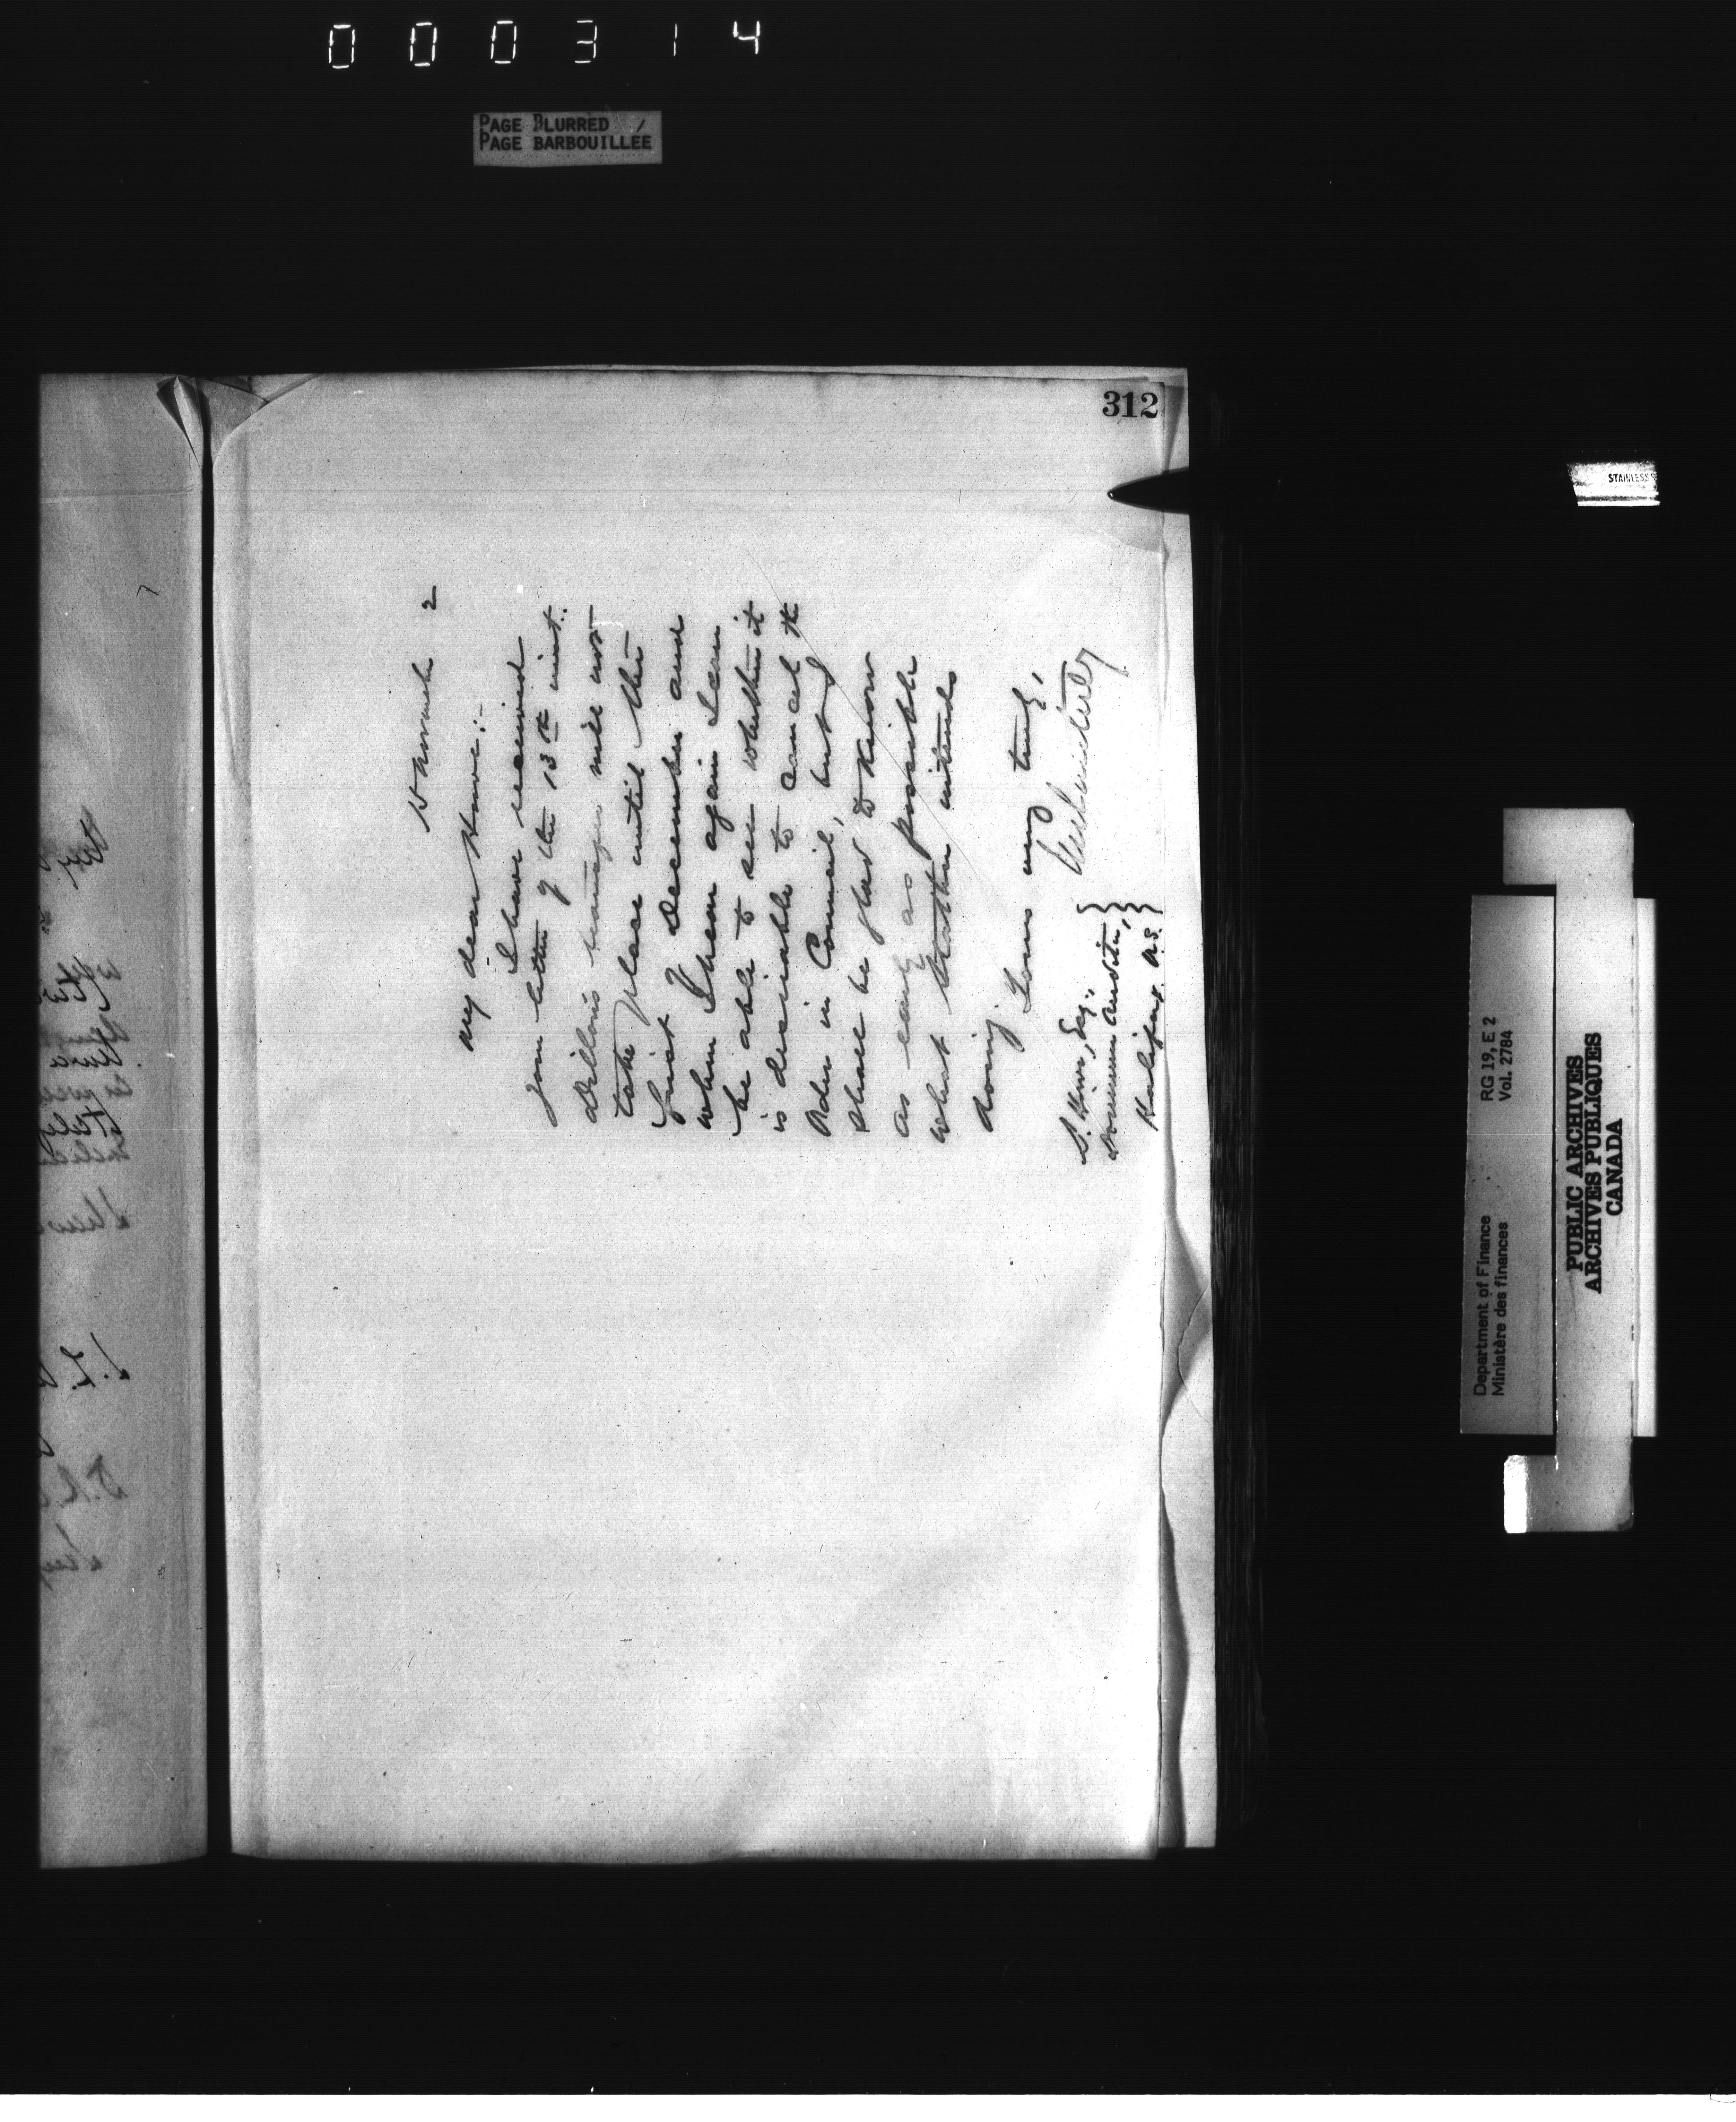 000314
PAGE BLURRED
PAGE BARBOUILLÉE
312
15 November 2
My dear Howe:-
I have received
your letter of the 13th inst.
Dillon's transfer will not
take place until the
first December and
when I hear again I can
be able to see whether it
is desirable to cancel the
Order in Council, but
shall be glad to know
as early as possible
what Strathern intends
doing.
Yours very truly,
S. Howe, Esq.,
Dominion Auditor,
Halifax. N.S.
STAINLESS S
Department of Finance
Ministère des finances
RG 19, E 2
Vol. 2784
PUBLIC ARCHIVES
ARCHIVES PUBLIQUES
CANADA